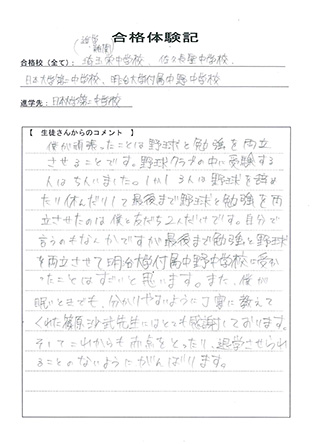 合格体験記
(進学補欄)
合格校(全て): 埼玉栄中学校、佐久長聖中学校、
日本大学第一中学校、明治大学付属中野中学校
進学先: 日本大学第一中学校
【 生徒さんからのコメント 】
僕が頑張ったことは野球と勉強を両立
させることです。野球クラブの中に受験する
人は5人いました。しかし3人は野球を辞め
たり休んだりして最後まで野球と勉強を両
立させたのは僕と友だち2人だけです。自分で
言うのもなんかですが最後まで勉強と野球
を両立させて明治大学付属中野中学校に受か
ったことはすごいと思います。また、僕が
眠いときでも、分かりやすいように丁寧に教えて
くれた篠原沙武先生にはとても感謝しております。
そしてこれからも赤点をとったり、退学させられ
ることのないようにがんばります。